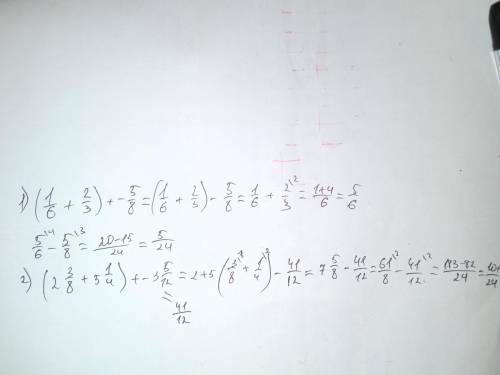 1) (1/6 + 2/3) + - 5/8 = (1/6 + 2/3) - 5/8 = 1/6 + 2/3 \2 = 1+4/6 = 5/6
5/6 \4 - 5/8 \3 = 20-15/24 = 5/24
2) (2 3/8 + 5 1/4) + - 3 5/12 = 2+5 (3/8 \1 + 1/4 \2) - 41/12 = 7 5/8 - 41/12 = 61/8 \2 - 41/12 \2 = 183-82/24 = 101/24
= 41/12